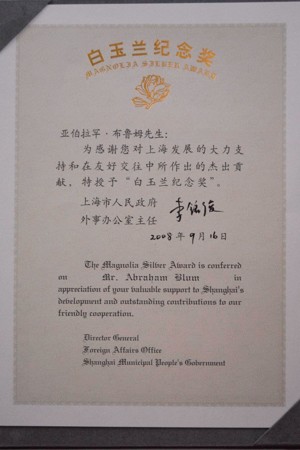 白玉兰纪念奖
MAGNOLIA SILVER AWARD
亚伯拉罕·布鲁姆先生：
为感谢您对上海发展的大力支
持和在友好交往中所作出的杰出贡
献，特授予“白玉兰纪念奖”。
上海市人民政府
外事办公室主任 李铭俊
2008年9月16日
The Magnolia Silver Award is conferred
on Mr. Abraham Blum in
appreciation of your valuable support to Shanghai's
development and outstanding contributions to our
friendly cooperation.
Director General
Foreign Affairs Office
Shanghai Municipal People's Government